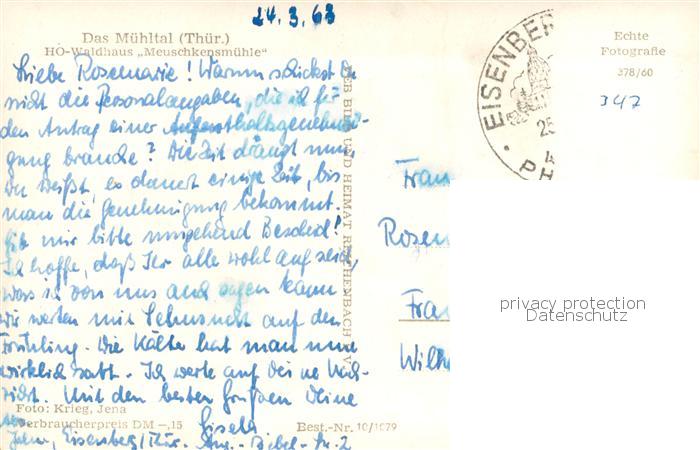 24.3.63
Das Mühltal (Thür.)
HO-Waldhaus „Meuschkensmühle"
Liebe Rosemarie! Warum schickst Du
nicht die Personalangaben, die ich für
den Antrag einer Aufenthaltsgenehmi-
gung brauche? Die Zeit drängt nun,
Du weißt, es dauert einige Zeit, bis
man die Genehmigung bekommt.
Gib mir bitte umgehend Bescheid!
Ich hoffe, daß Ihr alle wohl auf seid,
was ich von uns auch sagen kann
Wir warten mit Sehnsucht auf den
Frühling. Die Kälte hat man nun
wirklich satt. Ich warte auf deine Nach-
richt. Mit den besten Grüßen Deine
Gisela
Foto: Krieg, Jena
Verbraucherpreis DM -,15
Best.-Nr. 10/1079
Eisenberg/Thür.
BILD UND HEIMAT REICHENBACH
EISENBER
25
PH
Echte
Fotografie
378/60
347
Frau
Rosem
Fran
Wilh
privacy protection
Datenschutz